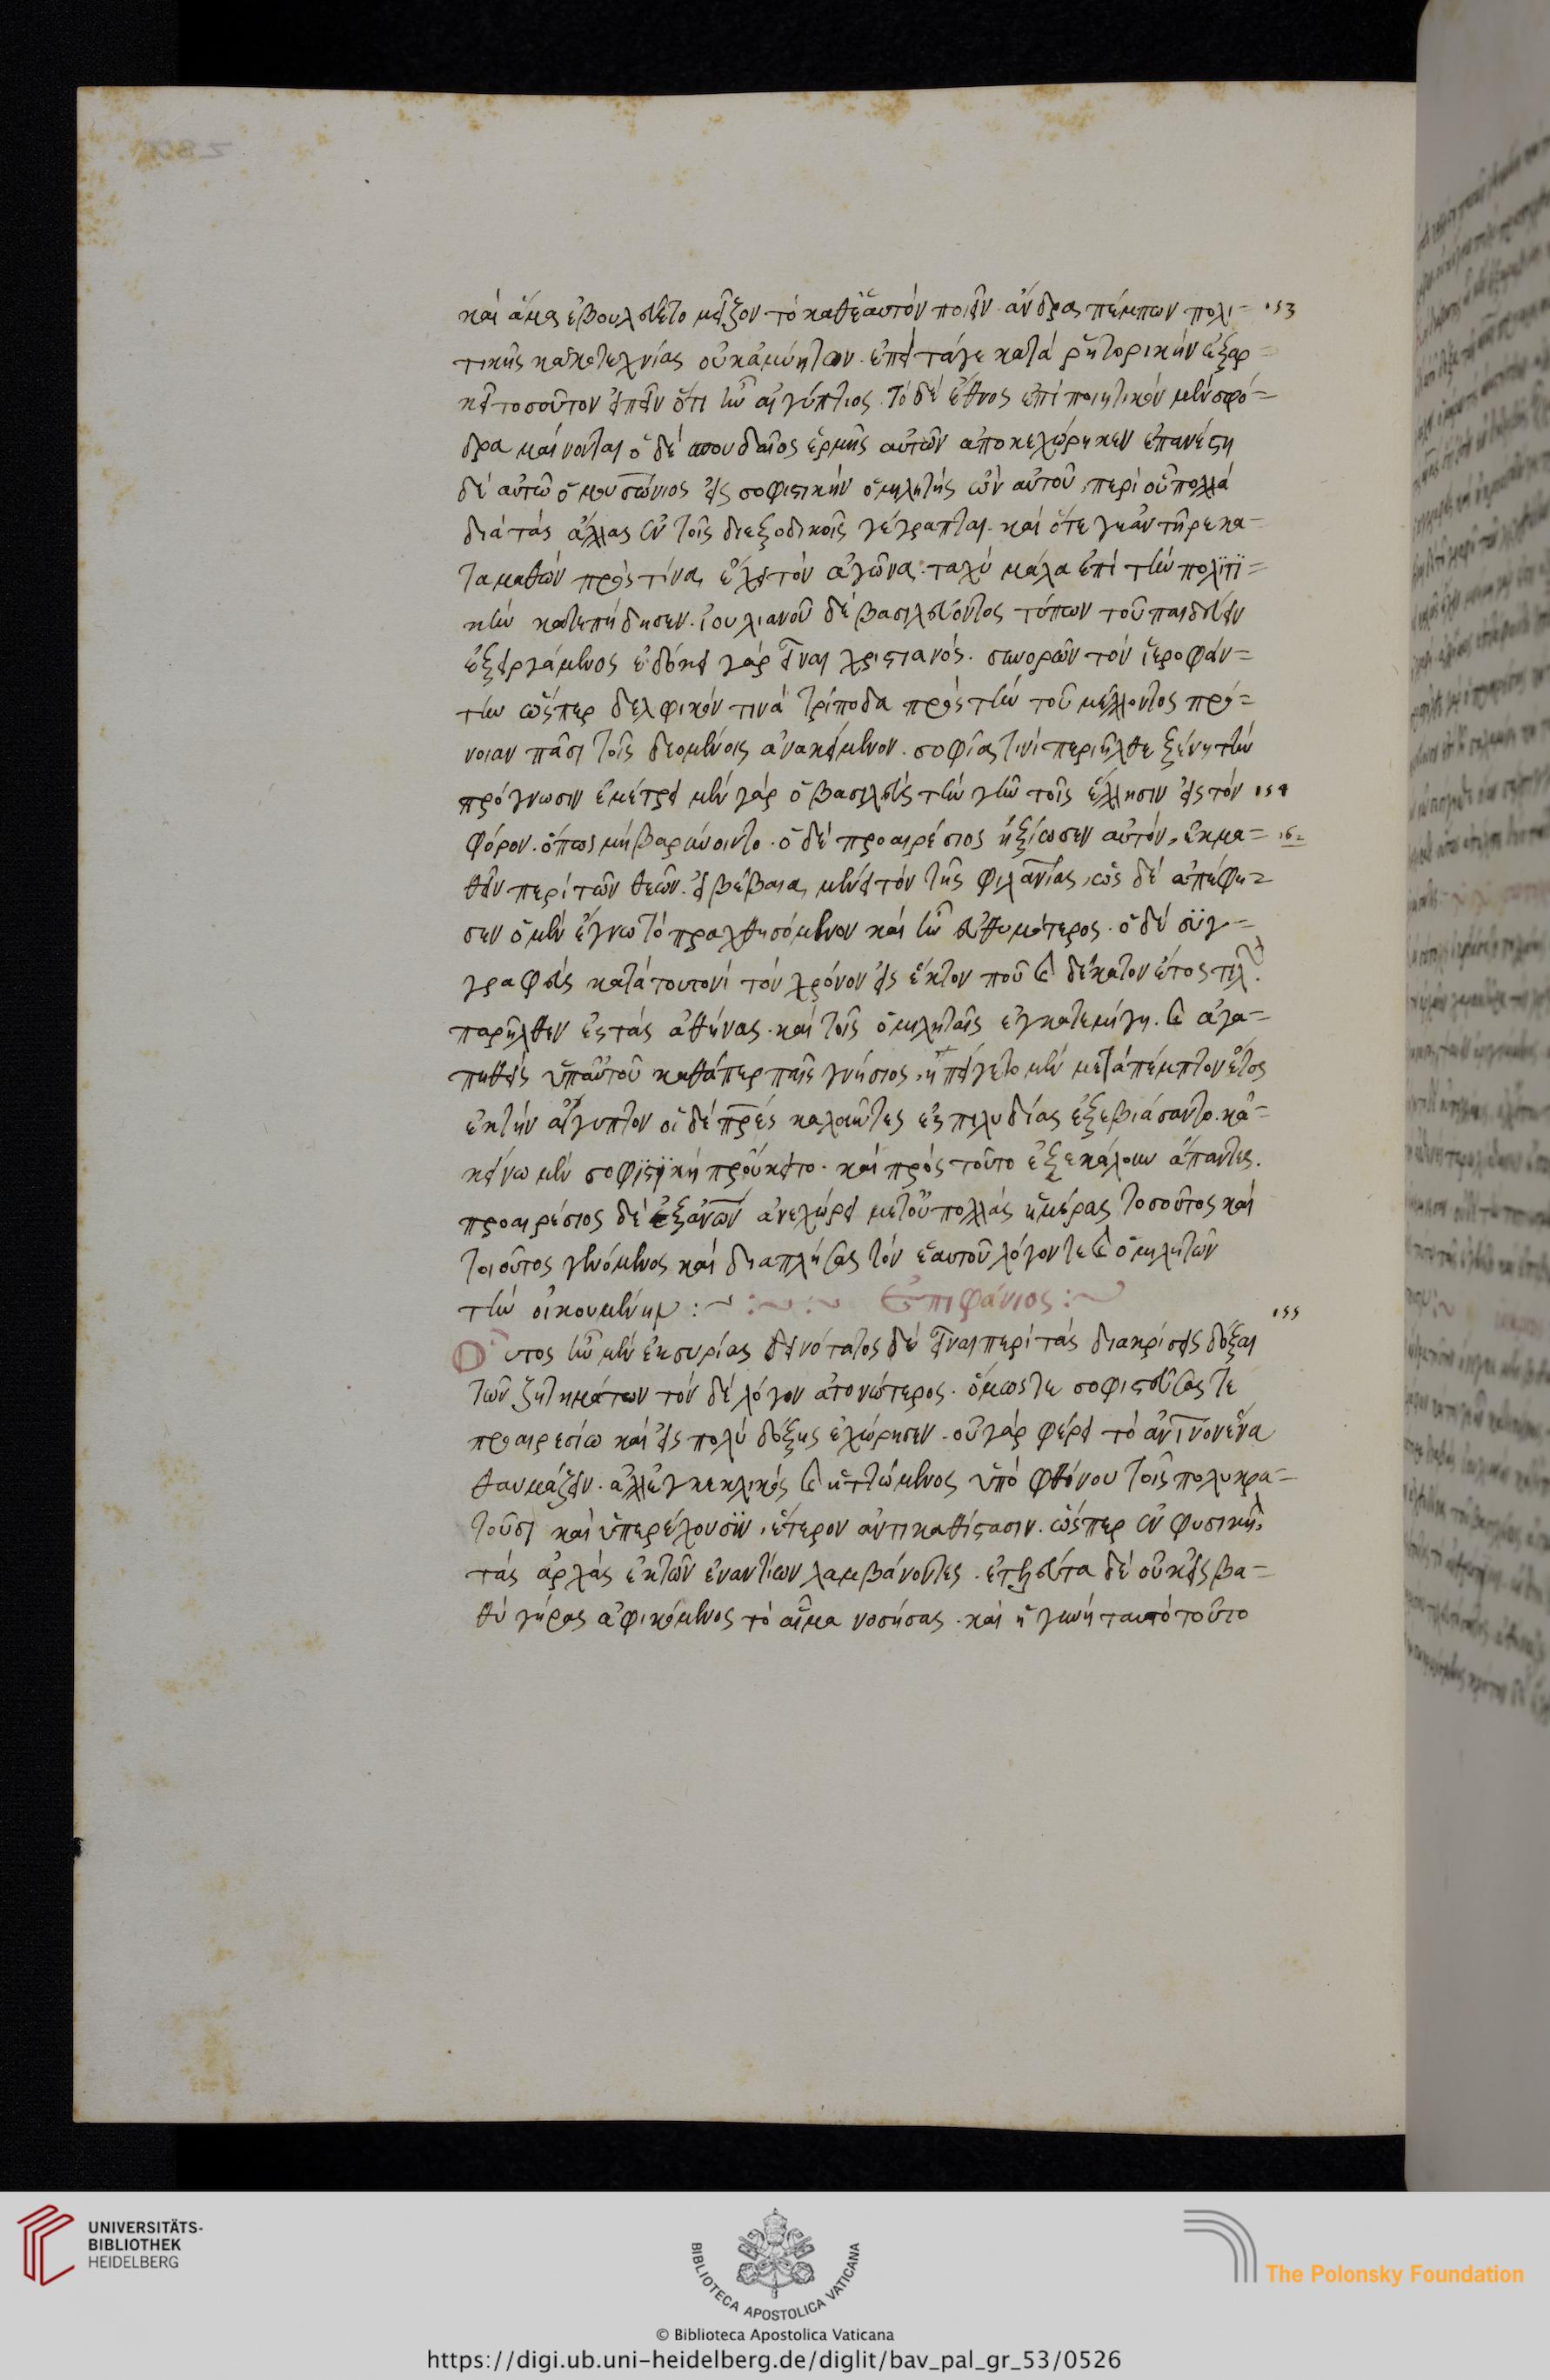 καὶ ἅμα ἐβουλεύετο μεῖζον τὸ καθ' ἑαυτὸν ποιεῖν ἄνδρας πέμπων πολι= 153
τικῆς κακοτεχνίας οὐκ ἀμύητον. ἐπεὶ τάγε κατὰ ῥητορικὴν ἐξαρ=
κεῖ τοσοῦτον εἰπεῖν ὅτι ἦν αἰγύπτιος. τὸ δὲ ἔθνος ἐπὶ ποιητικὸν μὲν σφό=
δρα μαίνονται ὁ δὲ σπουδαῖος ἑρμῆς αὐτῶν ἀποκεχώρηκεν ἐπανέστη
δὲ αὐτῶ ὁ μουσώνιος εἰς σοφιστικὴν ὁμιλητὴς ὢν αὐτοῦ, περὶ οὗ πολλὰ
διὰ τὰς ἄλλας ἐν τοῖς διεξοδικοῖς γέγραπται. καὶ ὅτε γε ἀντῆρε κα=
ταμαθὼν πρὸς τίνα ἔχει τὸν ἀγῶνα. ταχὺ μάλα ἐπὶ τὴν πολϊτϊ=
κὴν κατεπήδησεν. ἰουλιανοῦ δὲ βασιλεύοντος τόπων τοῦ παιδεύειν
ἐξειργάμενος ἐδόκει γὰρ εἶναι χριστιανός. συνορῶν τὸν ἱεροφάν=
την ὥσπερ δελφικόν τινὰ τρίποδα πρὸς τὴν τοῦ μέλλοντος πρό=
νοιαν πᾶσι τοῖς δεομένοις ἀνακείμενον. σοφίᾳ τινὶ περιῆλθε ξένῃ τὴν
πρόγνωσιν ἐμέτρει μὲν γὰρ ὁ βασιλεὺς τὴν γῆν τοῖς ἕλλησιν εἰς τὸν 154
φόρον. ὅπως μὴ βαρύνοιντο. ὁ δὲ προαιρέσιος ἠξίωσεν αὐτὸν, ἐκμα= 162
θεῖν περὶ τῶν θεῶν. εἰ βέβαια μένει τὸν τῆς φιλανίας, ὡς δὲ ἀπέφη=
σεν ὁ μὲν ἔγνω τὸ πραχθησόμενον καὶ ἦν εὐθυμότερος. ὁ δὲ σϋγ=
γραφεὺς κατὰ τουτονὶ τὸν χρόνον εἰς ἕκτον που καὶ δέκατον ἔτος τελ
παρῆλθεν ἐς τὰς ἀθήνας. καὶ τοῖς ὁμιληταῖς ἐγκατεμίγη. καὶ ἀγα=
πηθεὶς ὑπ' αὐτοῦ καθάπερ παῖς γνήσιος, ἠπείγετο μὲν μετὰ πέμπτον ἔτος
ἐκ τὴν αἴγυπτον οἱ δὲ πρες καλοῦντες ἐπὶ λυδίας ἐξεβιάσαντο. κἀ=
κείνω μὲν σοφϊστϊκὴ προὔκειτο. καὶ πρὸς τοῦτο ἐξεκάλουν ἅπαντες.
προαιρέσιος δὲ ἐξ ανων ἀνεχώρει μετ' οὐ πολλὰς ἡμέρας τοσοῦτος καὶ
τοιοῦτος γενόμενος καὶ διαπλήσας τὸν ἑαυτοῦ λόγον τε καὶ ὁμιλητῶν
τὴν οἰκουμένην :~ :~:~ Ἐπιφάνιος :~
Οὗτος ἦν μὲν ἐκ συρίας δεινότατος δὲ εἶναι περὶ τὰς διακρίσεις δόξαι 155
τῶν ζητημάτων τὸν δὲ λόγον ἀτονώτερος. ὅμως τε σοφιστεύσας τε
προαιρεσίω καὶ εἰς πολὺ δόξης ἐχώρησεν. οὐ γὰρ φέρει τὸ ανινον ἕνα
θαυμάζειν. ἀλλ' ἐγκεκλικὸς καὶ ἡττώμενος ὑπὸ φθόνου τοῖς πολυκρα=
τοῦσι καὶ ὑπερέχουσϊν, ἕτερον ἀντικαθίστασιν. ὥσπερ ἐν φυσικῆ,
τὰς ἀρχὰς ἐκ τῶν ἐναντίων λαμβάνοντες. ἐτελεύτα δὲ οὐκ εἰς βα=
θὺ γῆρας ἀφικόμενος τὸ αἷμα νοσήσας. καὶ ἡ γυνὴ ταυτὸ τοῦτο
UNIVERSITÄTS-
BIBLIOTHEK
HEIDELBERG
BIBLIOTECA APOSTOLICA VATICANA
The Polonsky Foundation
© Biblioteca Apostolica Vaticana
https://digi.ub.uni-heidelberg.de/diglit/bav_pal_gr_53/0526